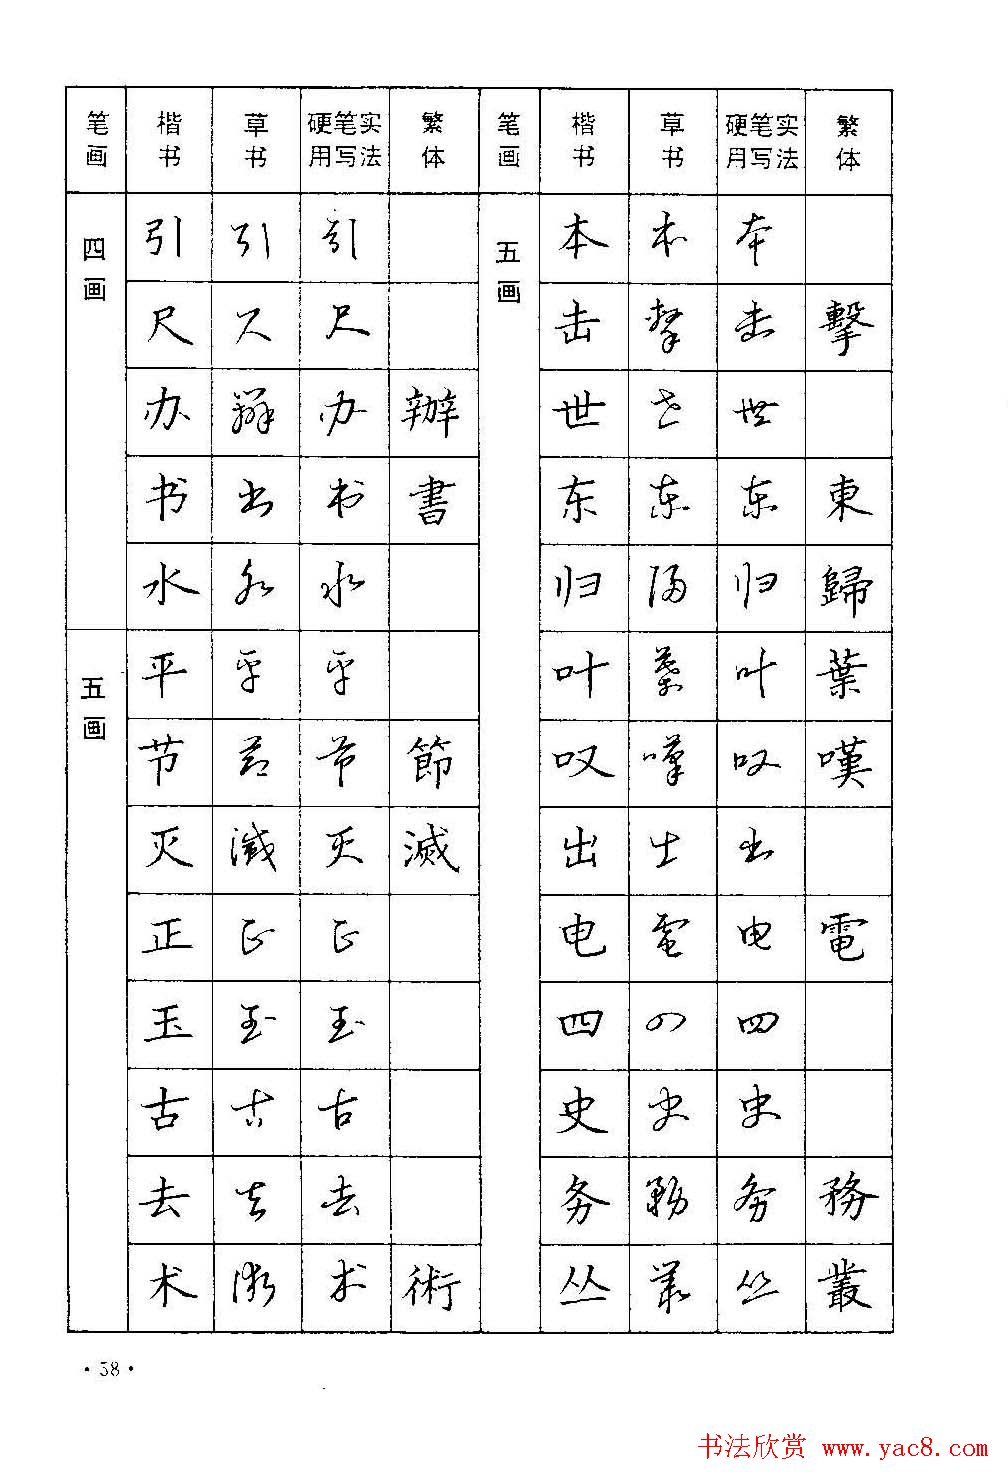 笔画 楷书 草书 硬笔实用写法 繁体 笔画 楷书 草书 硬笔实用写法 繁体
四画 引 引 引 五画 本 本 本
尺 尺 尺 击 擊 击 擊
办 辦 办 辦 世 世 世
书 书 书 書 东 东 东 東
水 水 水 归 歸 归 歸
五画 平 平 平 叶 葉 叶 葉
节 節 节 節 叹 嘆 叹 嘆
灭 滅 灭 滅 出 出 出
正 正 正 电 電 电 電
玉 玉 玉 四 四 四
古 古 古 史 史 史
去 去 去 务 務 务 務
术 術 术 術 丛 叢 丛 叢
·58·
书法欣赏 www.yac8.com